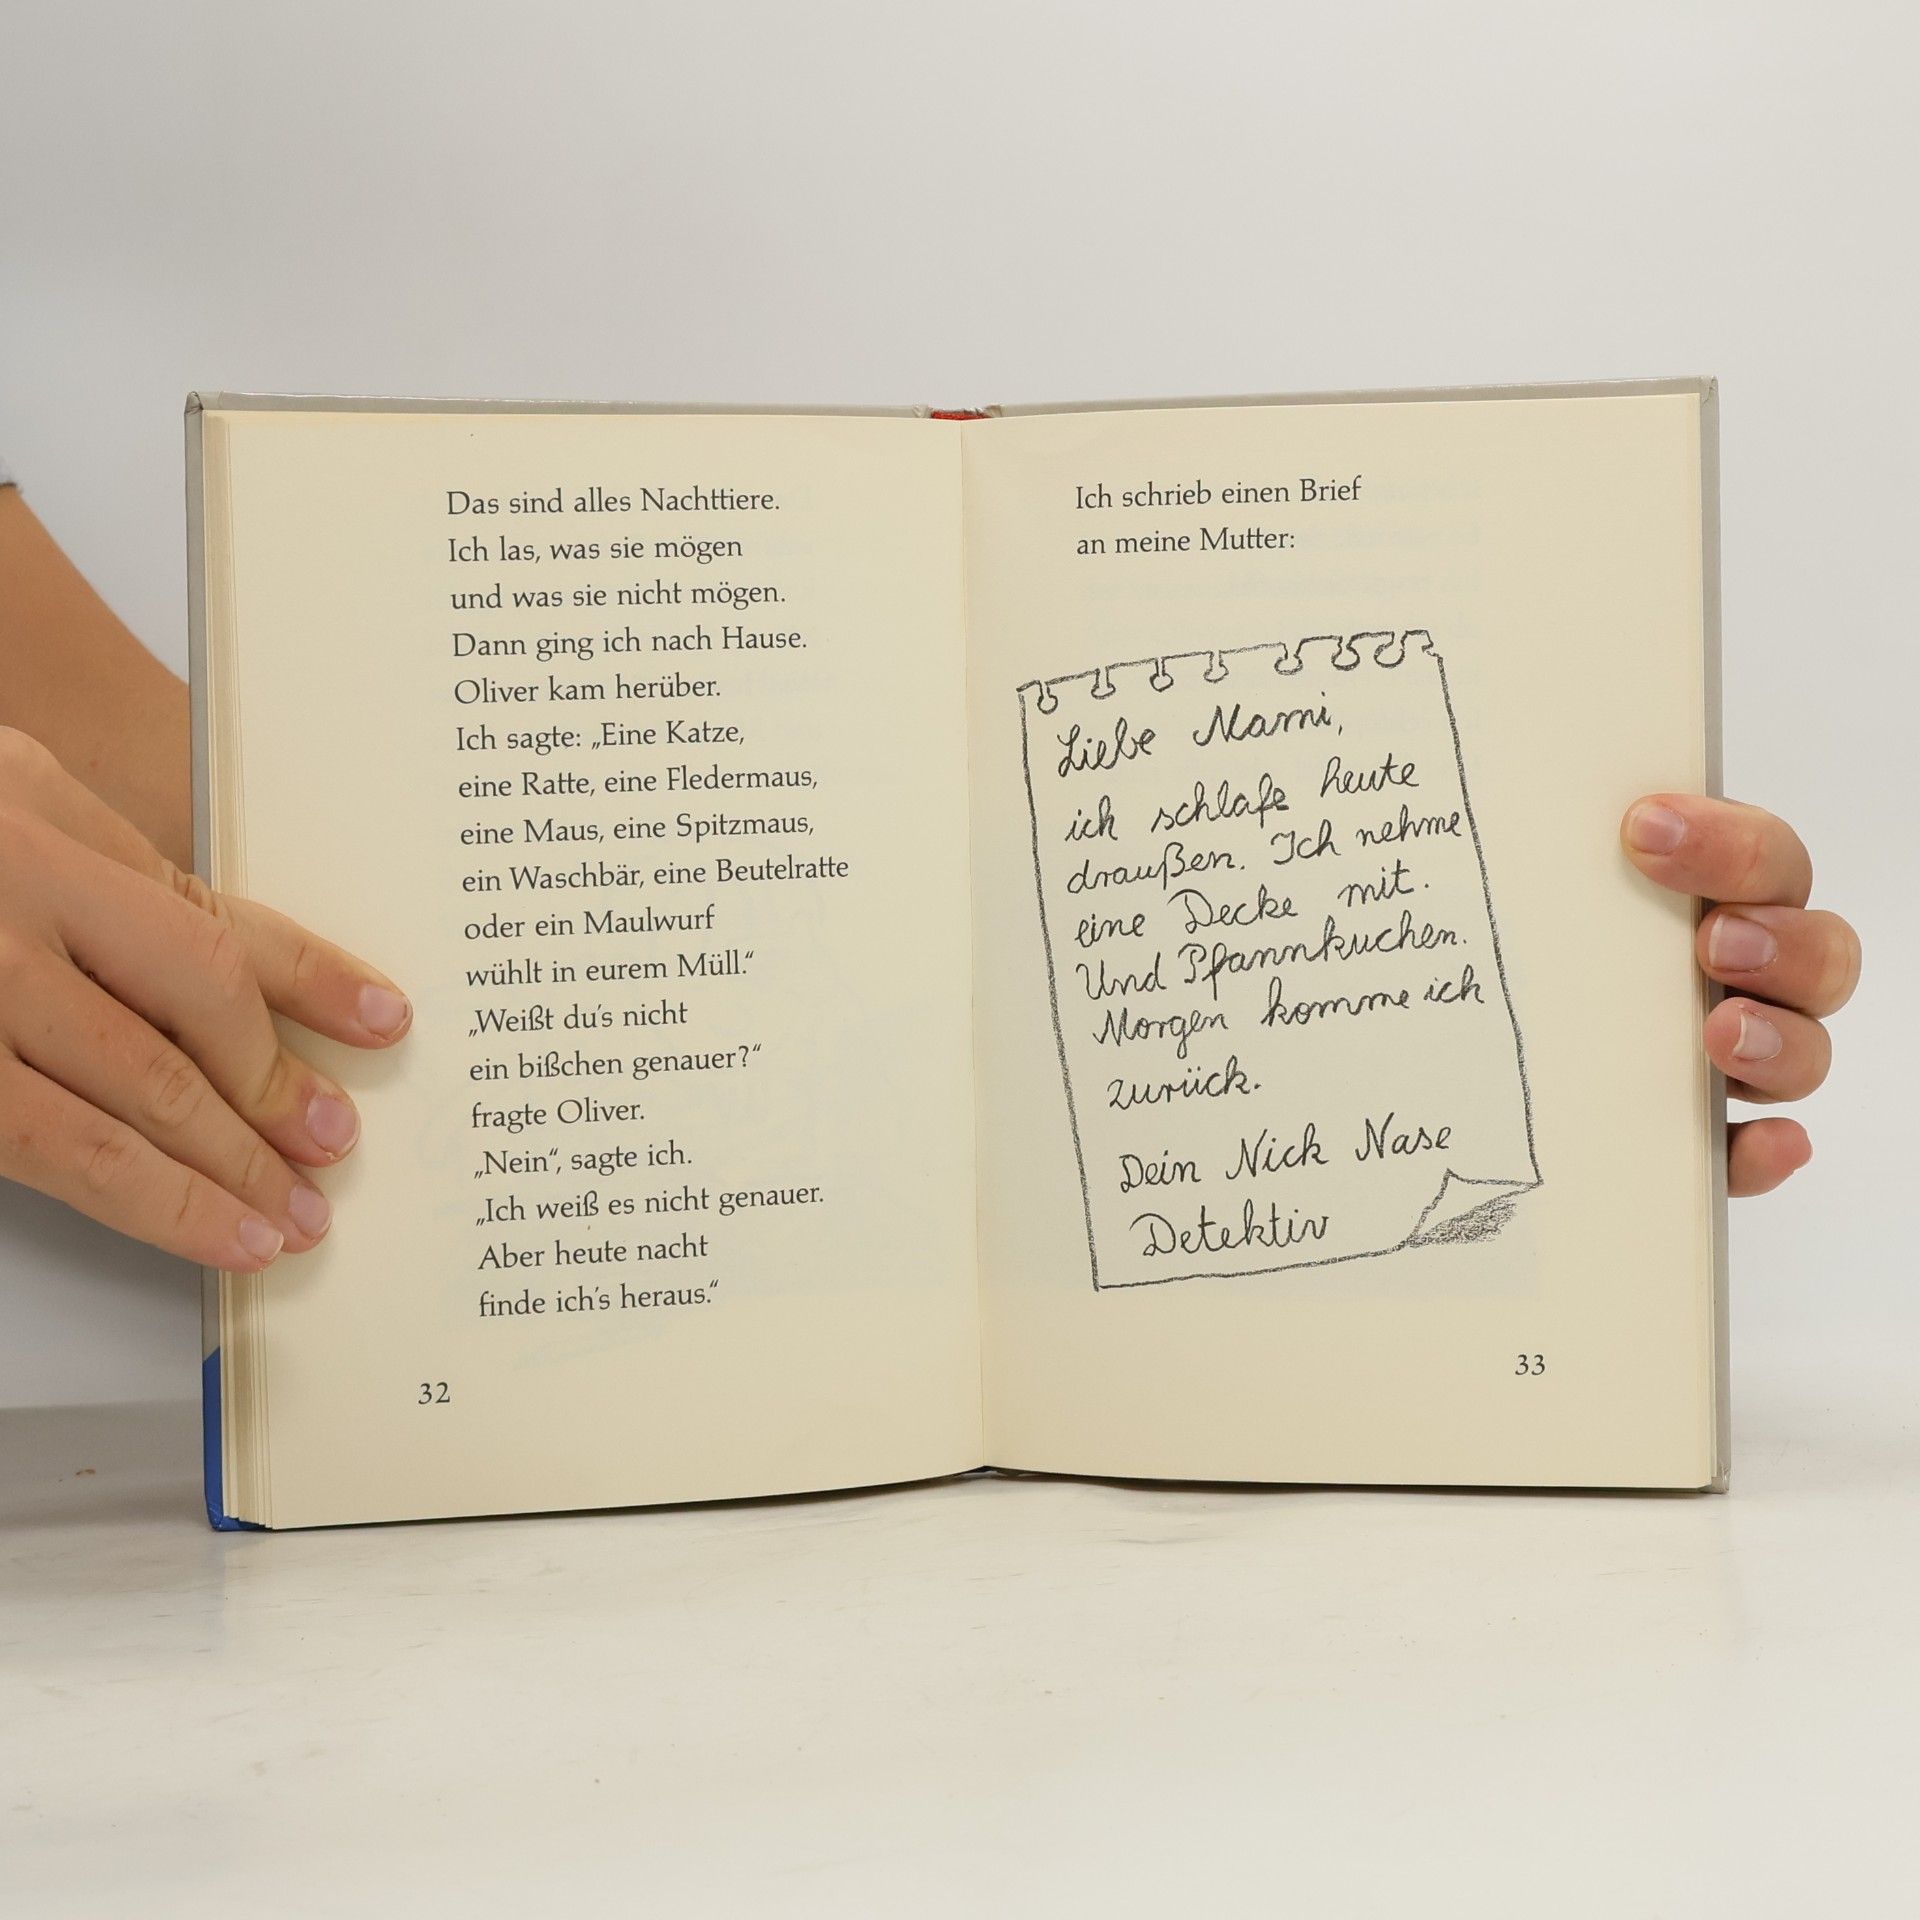 Das sind alles Nachttiere.
Ich las, was sie mögen
und was sie nicht mögen.
Dann ging ich nach Hause.
Oliver kam herüber.
Ich sagte: „Eine Katze,
eine Ratte, eine Fledermaus,
eine Maus, eine Spitzmaus,
ein Waschbär, eine Beutelratte
oder ein Maulwurf
wühlt in eurem Müll.“
„Weißt du's nicht
ein bißchen genauer?“
fragte Oliver.
„Nein“, sagte ich.
„Ich weiß es nicht genauer.
Aber heute nacht
finde ich's heraus.“
32
Ich schrieb einen Brief
an meine Mutter:
Liebe Mami,
ich schlafe heute
draußen. Ich nehme
eine Decke mit.
Und Pfannkuchen.
Morgen komme ich
zurück.
Dein Nick Nase
Detektiv
33